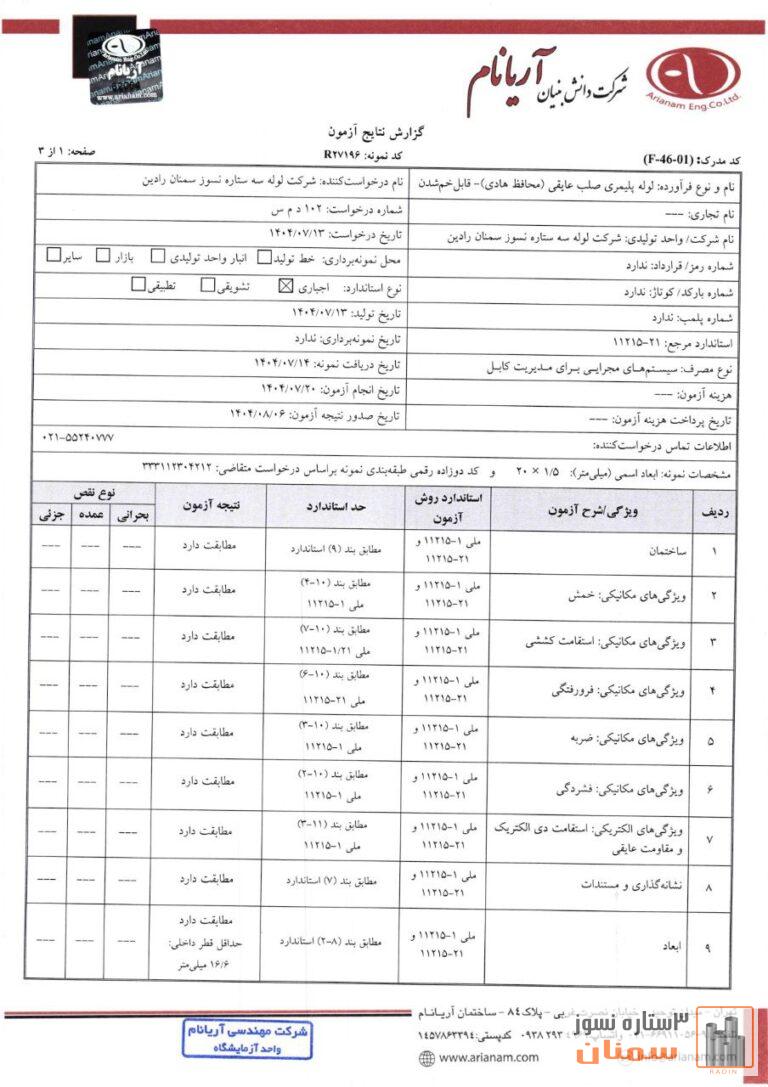 آریانام
www.arianam.com
شرکت دانش بنیان آریانام
Arianam Eng.Co.Ltd.
گزارش نتایج آزمون
کد مدرک: (F-46-01)
کد نمونه: R۲۷۱۹۶
صفحه: ۱ از ۳
نام و نوع فرآورده: لوله پلیمری صلب عایقی (محافظ هادی)- قابل‌خم‌شدن
نام درخواست‌کننده: شرکت لوله سه ستاره نسوز سمنان رادین
نام تجاری: ---
شماره درخواست: ۱۰۲ د م س
نام شرکت/ واحد تولیدی: شرکت لوله سه ستاره نسوز سمنان رادین
تاریخ درخواست: ۱۴۰۴/۰۷/۱۳
شماره رمز/ قرارداد: ندارد
محل نمونه‌برداری: خط تولید انبار واحد تولیدی بازار سایر
شماره بارکد/ کوتاژ: ندارد
نوع استاندارد: اجباری تشویقی تطبیقی
شماره پلمب: ندارد
تاریخ تولید: ۱۴۰۴/۰۷/۱۳
استاندارد مرجع: ۲۱-۱۱۲۱۵
تاریخ نمونه‌برداری: ندارد
نوع مصرف: سیستم‌های مجرایی برای مدیریت کابل
تاریخ دریافت نمونه: ۱۴۰۴/۰۷/۱۴
هزینه آزمون: ---
تاریخ انجام آزمون: ۱۴۰۴/۰۷/۲۰
تاریخ پرداخت هزینه آزمون: ---
تاریخ صدور نتیجه آزمون: ۱۴۰۴/۰۸/۰۶
اطلاعات تماس درخواست‌کننده:
۰۲۱-۵۵۲۴۰۷۷۷
مشخصات نمونه: ابعاد اسمی (میلی‌متر): ۱/۵ × ۲۰ و کد دوازده رقمی طبقه‌بندی نمونه براساس درخواست متقاضی: ۳۳۳۱۱۲۳۰۴۲۱۲
ردیف ویژگی/شرح آزمون استاندارد روش آزمون حد استاندارد نتیجه آزمون نوع نقص
بحرانی عمده جزئی
۱ ساختمان ملی ۱-۱۱۲۱۵ و ۲۱-۱۱۲۱۵ مطابق بند (۹) استاندارد مطابقت دارد --- --- ---
۲ ویژگی‌های مکانیکی: خمش ملی ۱-۱۱۲۱۵ و ۲۱-۱۱۲۱۵ مطابق بند (۱۰-۴) ملی ۱-۱۱۲۱۵ مطابقت دارد --- --- ---
۳ ویژگی‌های مکانیکی: استقامت کششی ملی ۱-۱۱۲۱۵ و ۲۱-۱۱۲۱۵ مطابق بند (۱۰-۷) ملی ۱/۲۱-۱۱۲۱۵ مطابقت دارد --- --- ---
۴ ویژگی‌های مکانیکی: فرورفتگی ملی ۱-۱۱۲۱۵ و ۲۱-۱۱۲۱۵ مطابق بند (۱۰-۶) ملی ۲۱-۱۱۲۱۵ مطابقت دارد --- --- ---
۵ ویژگی‌های مکانیکی: ضربه ملی ۱-۱۱۲۱۵ و ۲۱-۱۱۲۱۵ مطابق بند (۱۰-۳) ملی ۱-۱۱۲۱۵ مطابقت دارد --- --- ---
۶ ویژگی‌های مکانیکی: فشردگی ملی ۱-۱۱۲۱۵ و ۲۱-۱۱۲۱۵ مطابق بند (۱۰-۲) ملی ۱-۱۱۲۱۵ مطابقت دارد --- --- ---
۷ ویژگی‌های الکتریکی: استقامت دی الکتریک و مقاومت عایقی ملی ۱-۱۱۲۱۵ و ۲۱-۱۱۲۱۵ مطابق بند (۱۱-۳) ملی ۱-۱۱۲۱۵ مطابقت دارد --- --- ---
۸ نشانه‌گذاری و مستندات ملی ۱-۱۱۲۱۵ و ۲۱-۱۱۲۱۵ مطابق بند (۷) استاندارد مطابقت دارد --- --- ---
۹ ابعاد ملی ۱-۱۱۲۱۵ و ۲۱-۱۱۲۱۵ مطابق بند (۸-۲) استاندارد مطابقت دارد حداقل قطر داخلی: ۱۶/۶ میلی‌متر --- --- ---
خیابان نصرت غربی - پلاک ۸۴ - ساختمان آریانام
کدپستی: ۱۴۵۷۸۶۳۳۹۴
www.arianam.com
شرکت مهندسی آریانام
واحد آزمایشگاه
۳ستاره نسوز
سمنان
RADIN